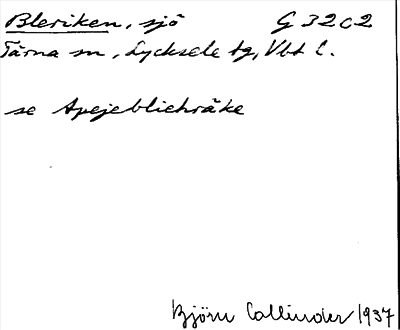 Bleriken, sjö G 32 c 2
Tärna sn, Lycksele tg, Vbt l.
se Apejebliehräke
Björn Collinder 1937